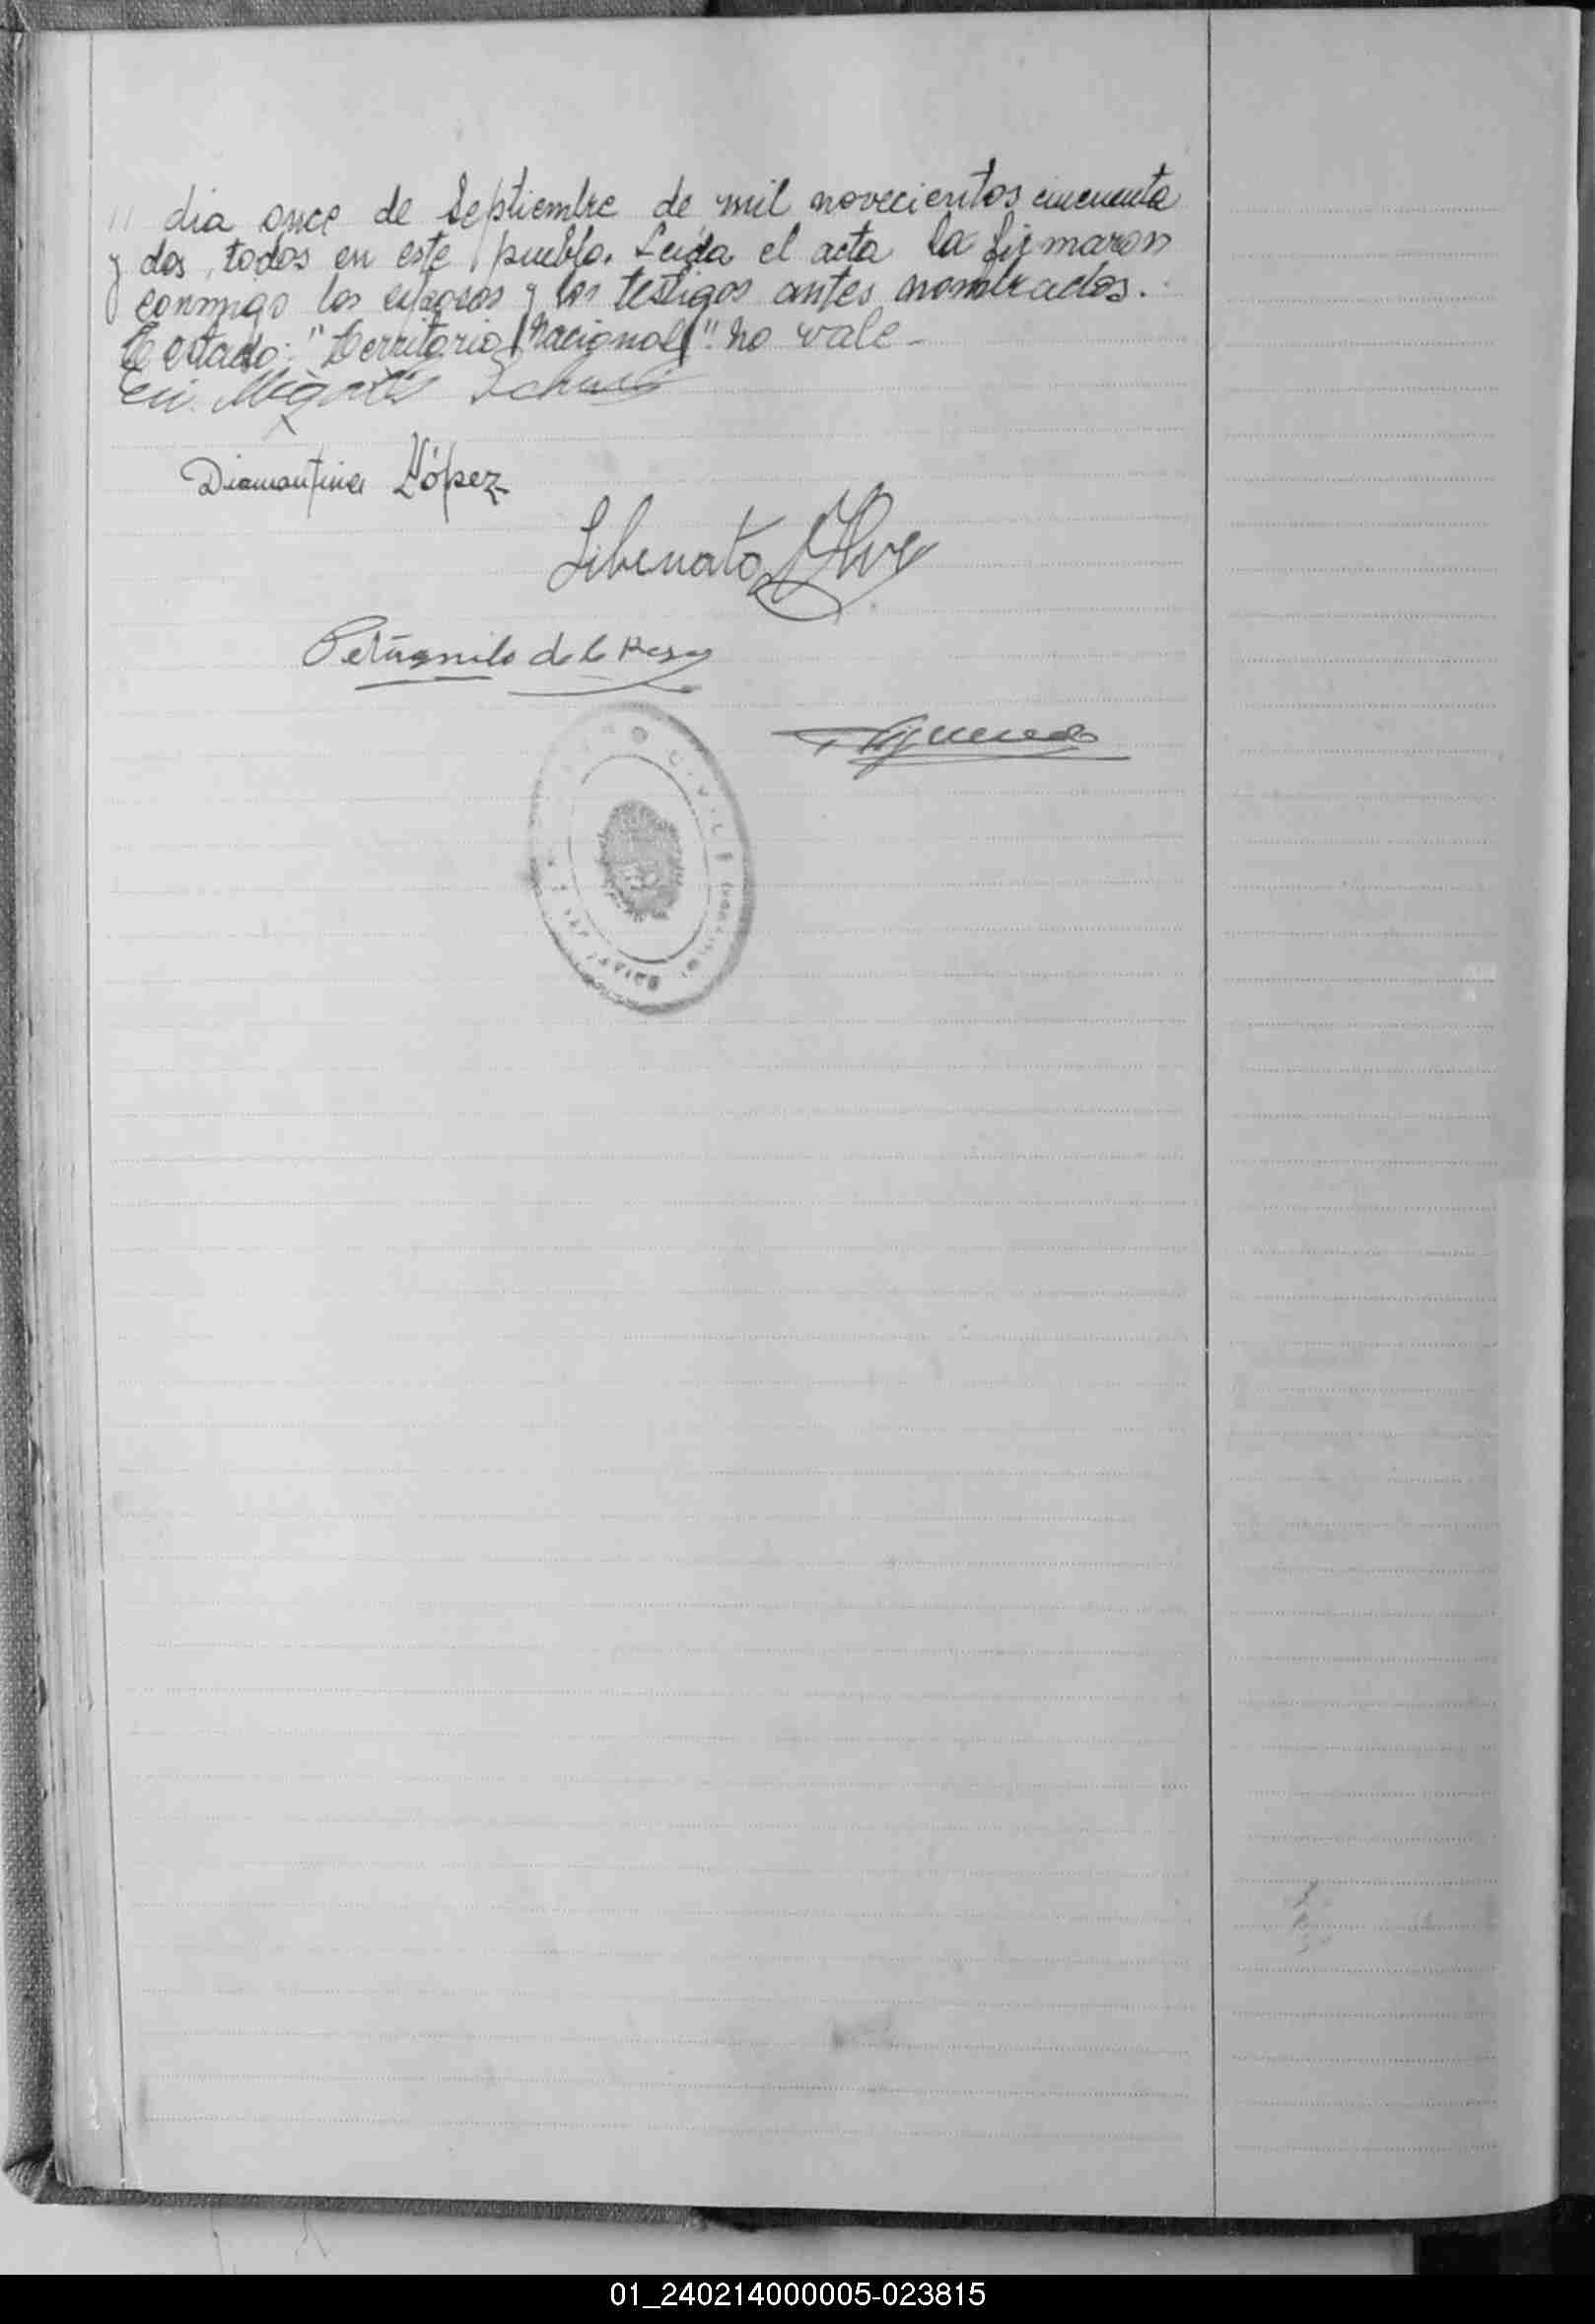 " dia once de Septiembre de mil novecientos cincuenta
y dos, todos en este pueblo. Leída el acta la firmaron
conmigo los esposos y los testigos antes nombrados.
Testado: "Territorio Nacional" no vale-
Diamantina López
Liberato
de la Rosa
CIVIL
01_240214000005-023815